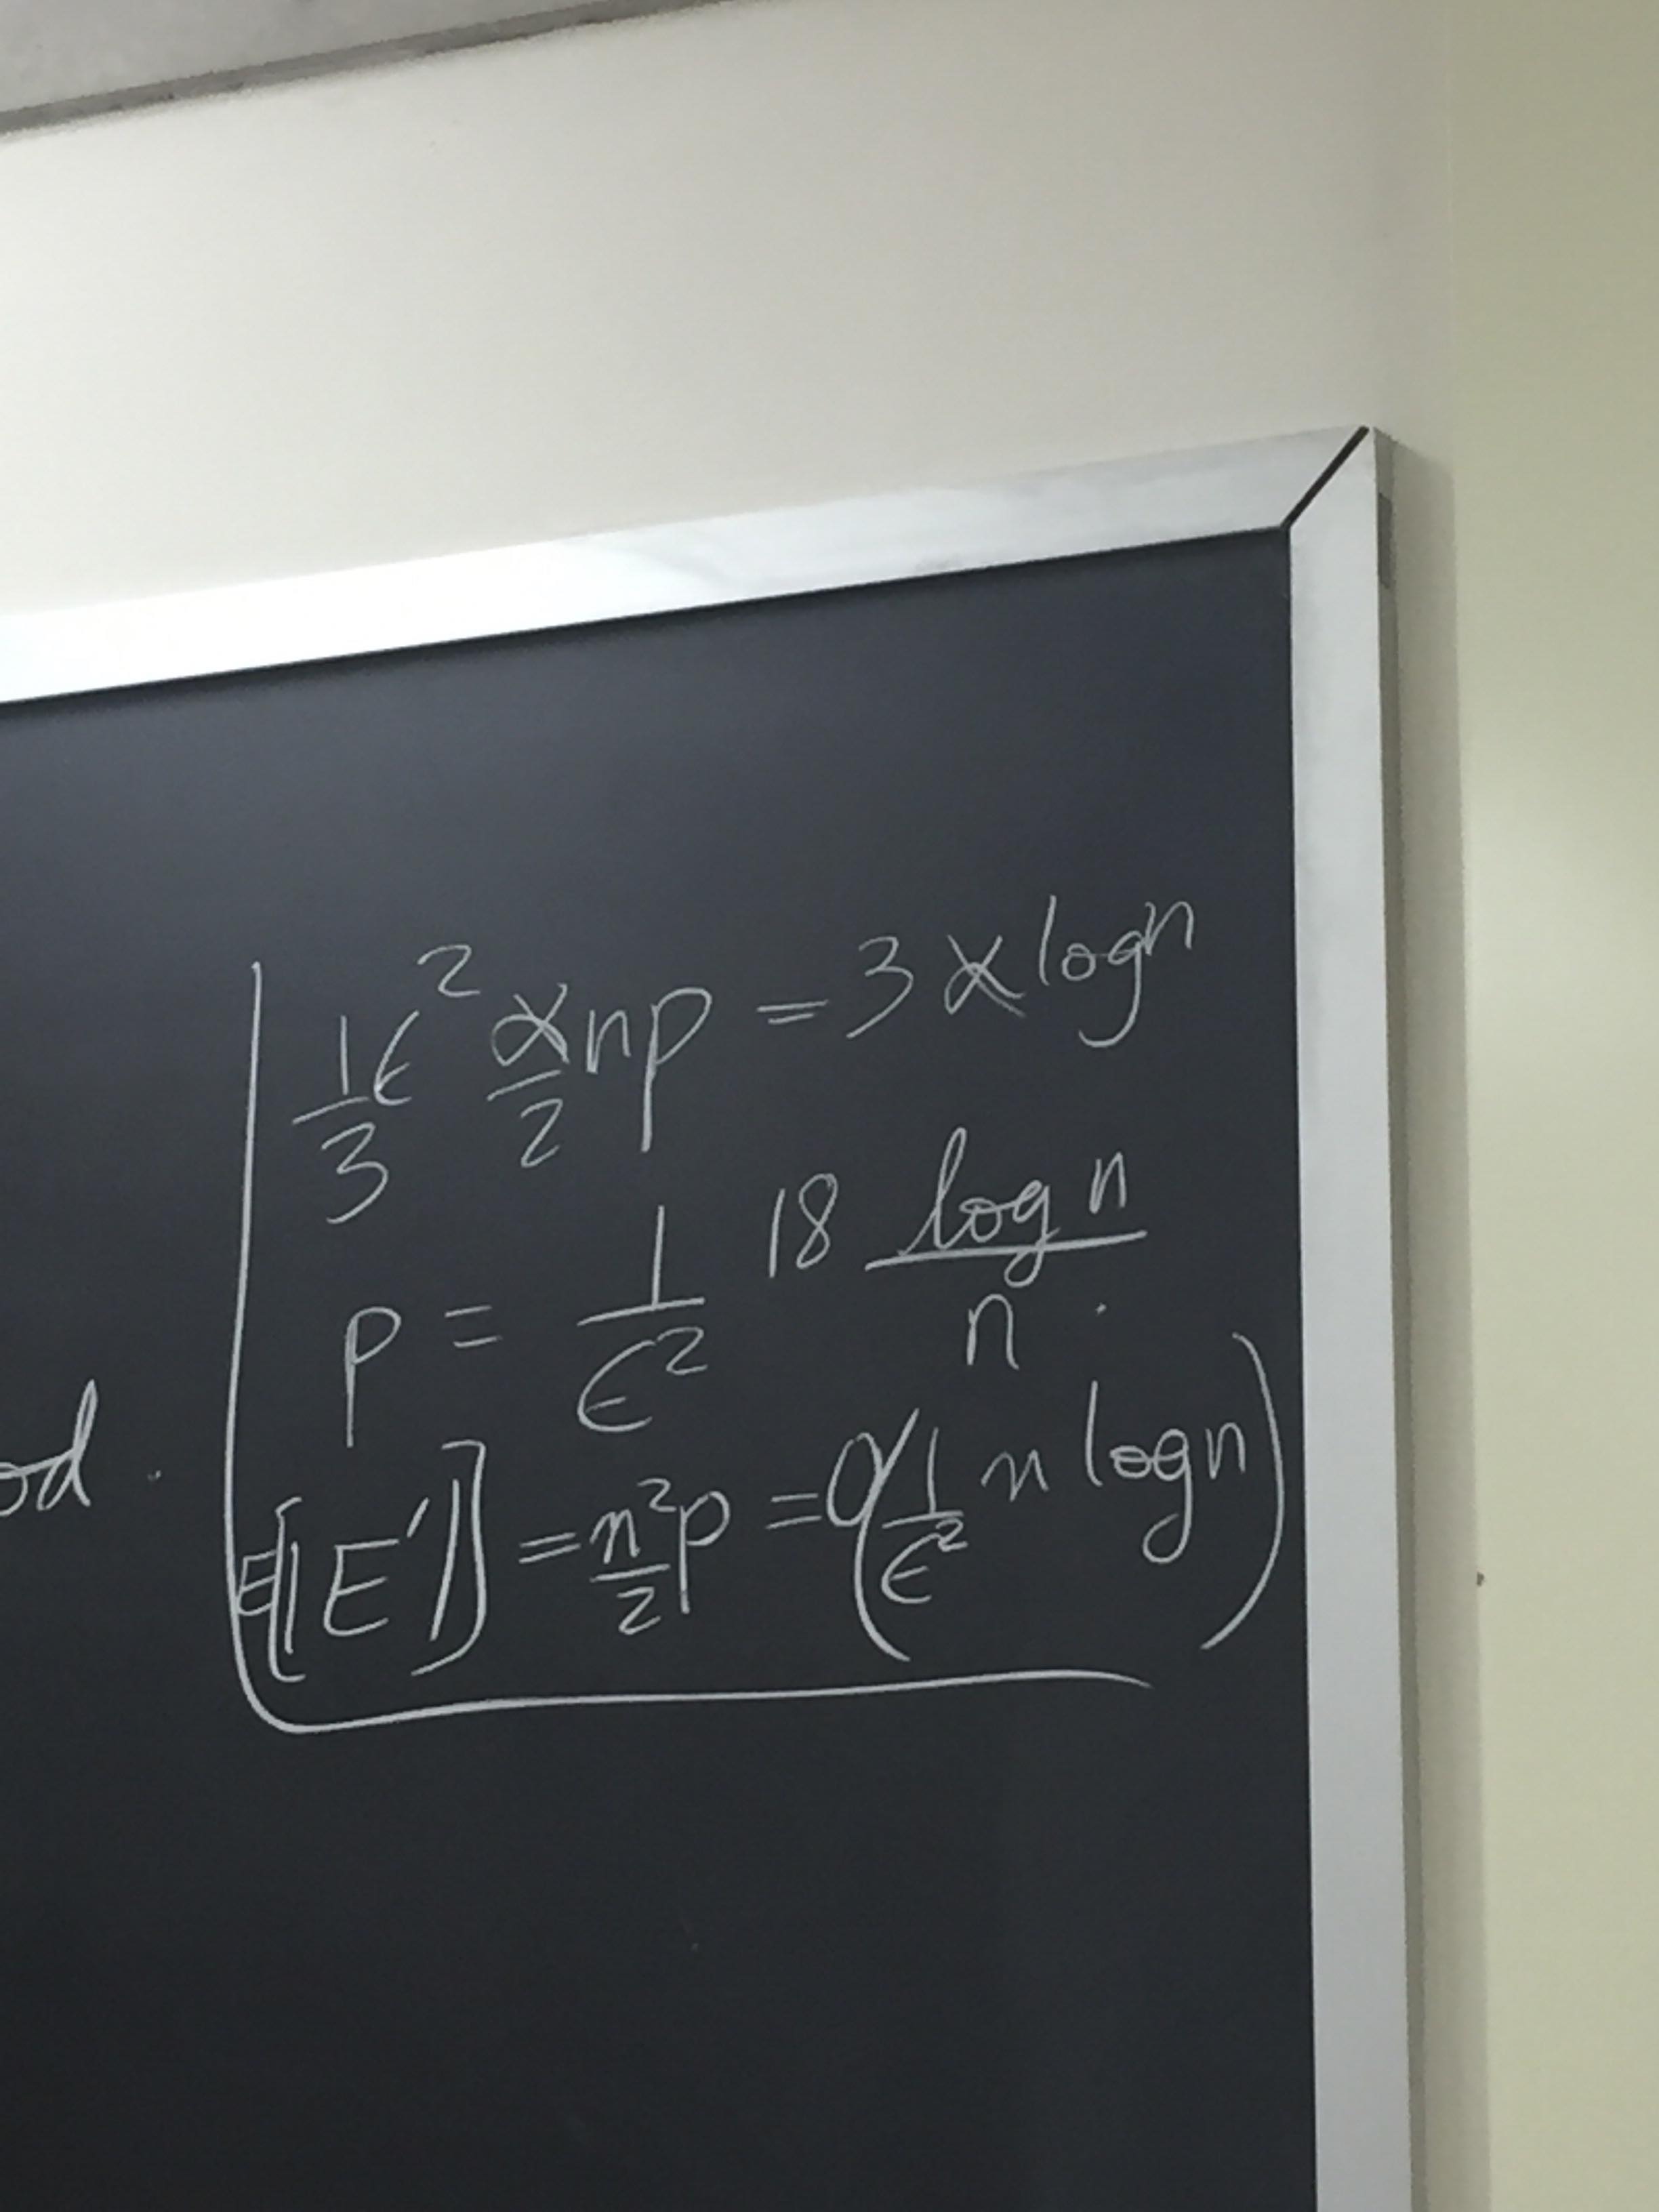 1/3 ϵ² α/2 np = 3 α log n
p = 1/ϵ² 18 log n/n.
od.
E[|E'|] = n²/2 p = O(1/ϵ² n log n)